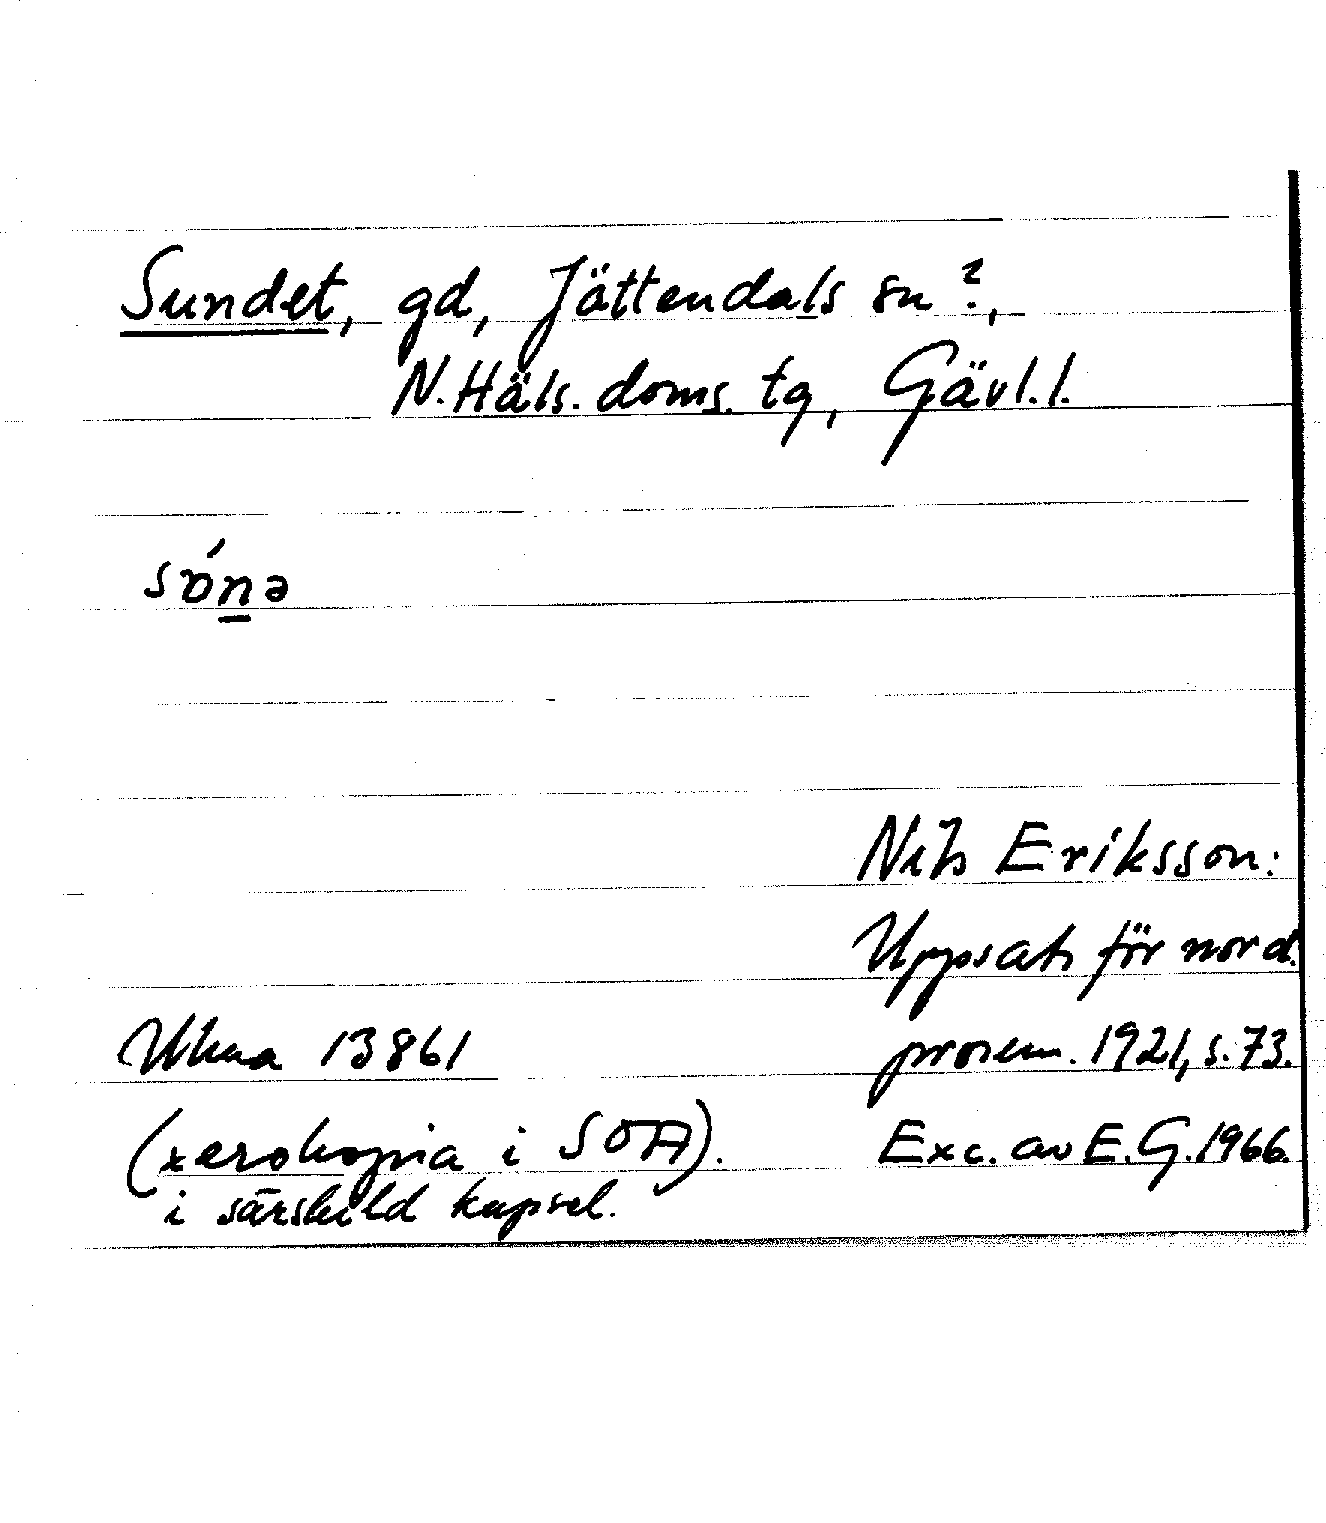 Sundet, gd, Jättendals sn ?,
N. Häls. doms. tg, Gävl. l.
Nils Eriksson:
Uppsats för nord.
Ukna 13861 prosem. 1921, s. 73.
(xerokopia i SOA). Exc. av E. G. 1966.
i särskild kapsel.